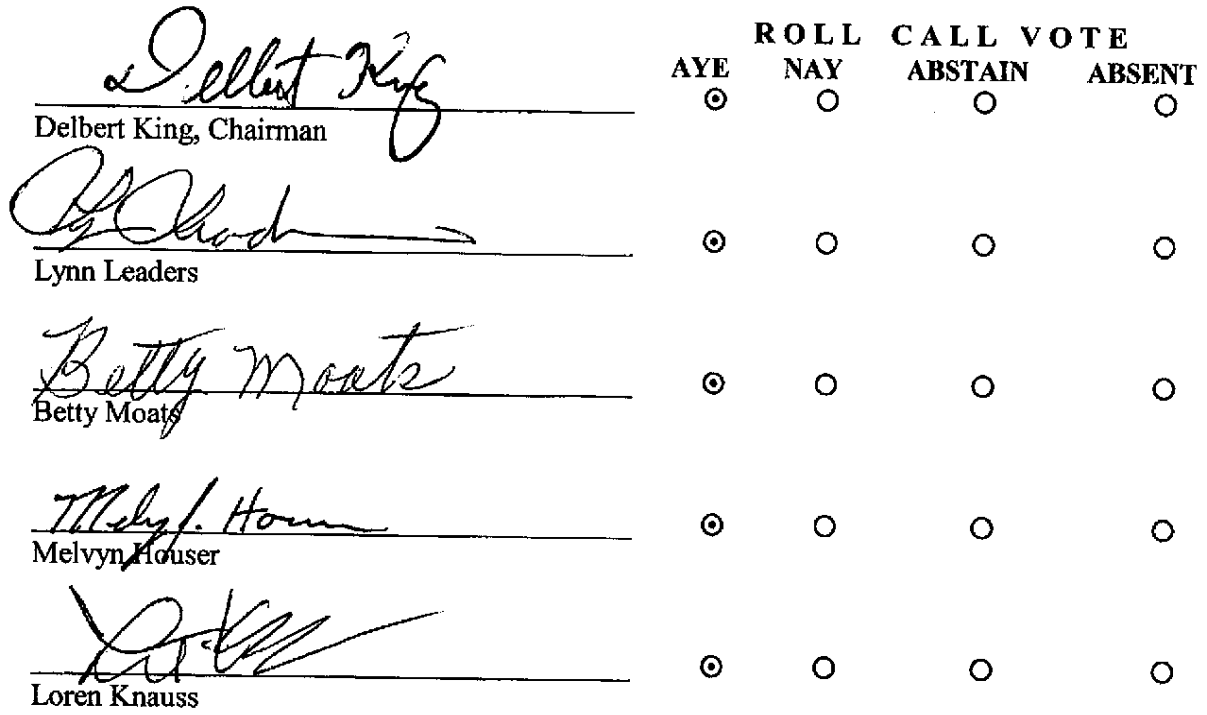 ROLL CALL VOTE
AYE NAY ABSTAIN ABSENT
Delbert King
Delbert King, Chairman
Lynn Leaders
Betty Moats
Betty Moats
Melvyn Houser
Loren Knauss